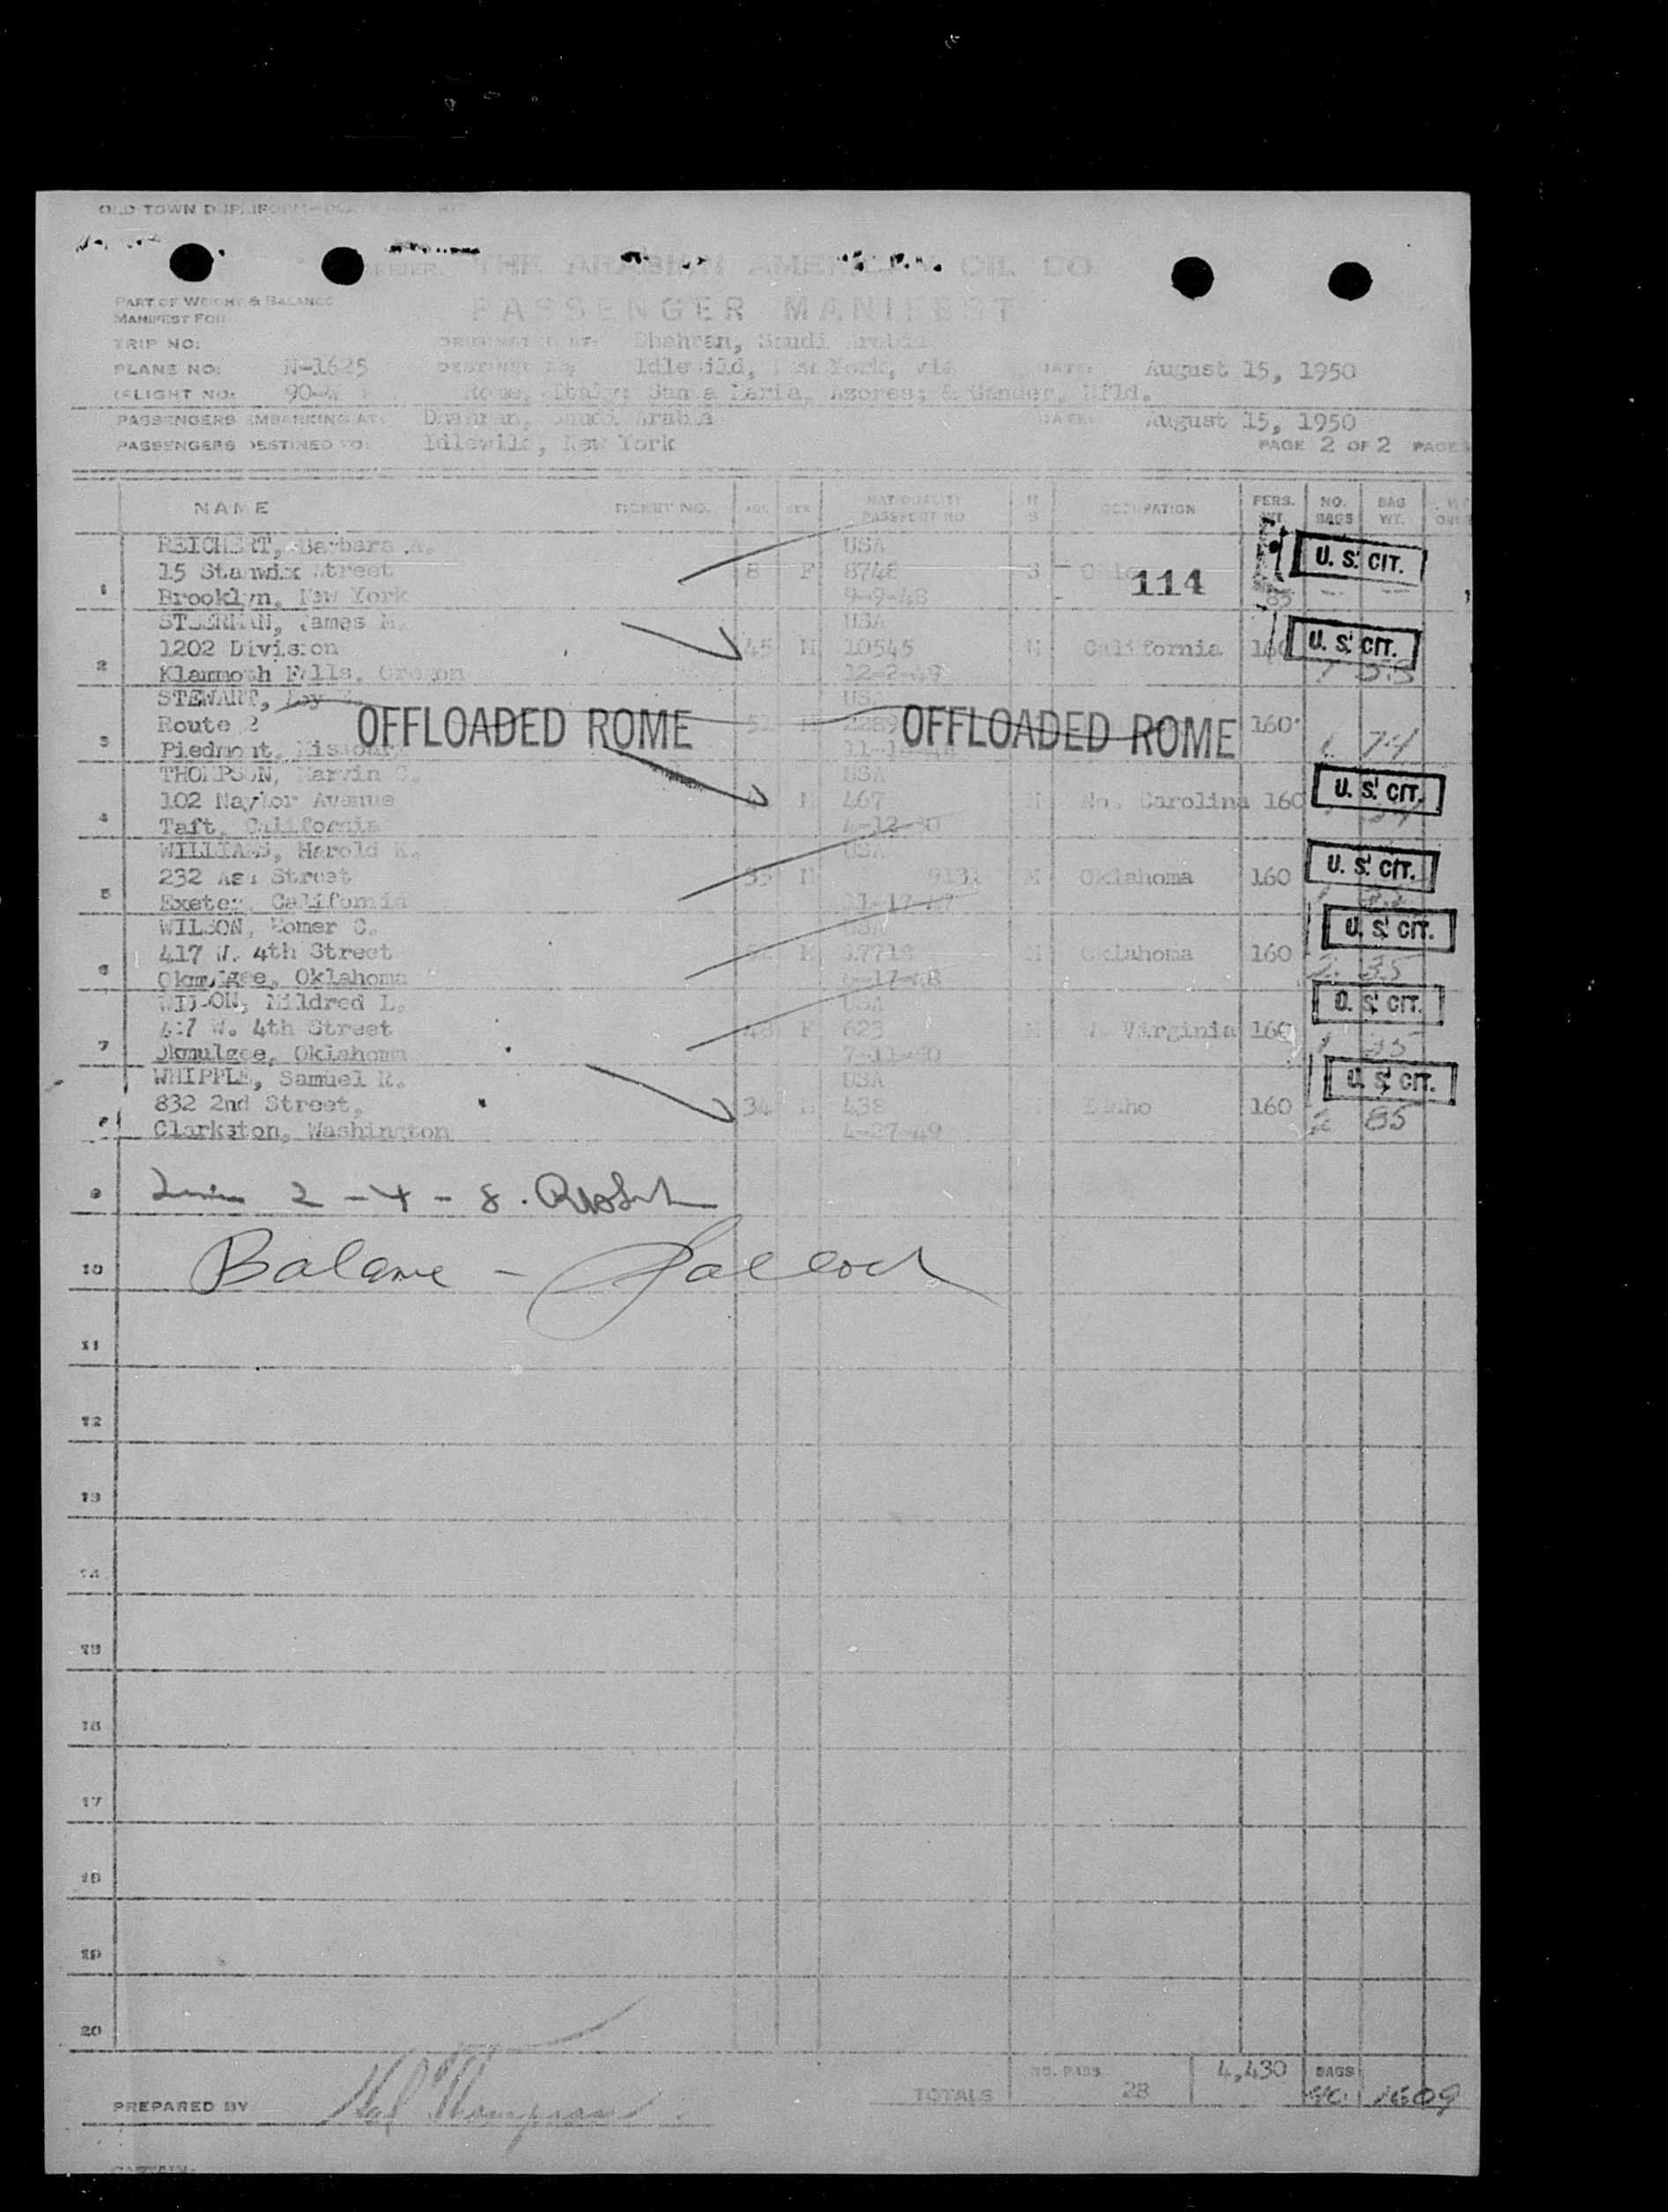 OLD TOWN
CARRIER: THE ARABIAN AMERICAN OIL CO.
PART OF WEIGHT & BALANCE
MANIFEST FOR
PASSENGER MANIFEST
TRIP NO: ORIGINATED AT: Dhahran, Saudi Arabia
PLANE NO: N-1625 DESTINED TO: Idlewild, New York, via DATE: August 15, 1950
FLIGHT NO: 90-W Rome, Italy; Santa Maria, Azores; & Gander, Nfld.
PASSENGERS EMBARKING AT: Dhahran, Saudi Arabia DATE: August 15, 1950
PASSENGERS DESTINED TO: Idlewild, New York PAGE 2 OF 2 PAGES
NAME TICKET NO. AGE SEX NATIONALITY PASSPORT NO M S OCCUPATION PERS. WT. NO. BAGS BAG WT.
REICHERT, Barbara A. USA
15 Stanwix Street 8 F 8748 S Ohio 114 U. S. CIT.
1 Brooklyn, New York 9-9-48 85
STEERMAN, James M. USA
1202 Division 45 M 10545 M California 160 U. S. CIT.
2 Klammoth Falls, Oregon 12-2-49
STEWART, USA
Route 2 OFFLOADED ROME OFFLOADED ROME 160
3 Piedmont, Missouri 74
THOMPSON, Marvin C. USA
102 Naylor Avenue M 467 M No. Carolina 160 U. S. CIT.
4 Taft, California
WILLIAMS, Harold K. USA
232 Ash Street 35 M 9131 M Oklahoma 160 U. S. CIT.
5 Exeter, California 11-17-47
WILSON, Homer C. USA U. S. CIT.
417 W. 4th Street M 17718 M Oklahoma 160
6 Okmulgee, Oklahoma 6-17-48 2 35
WILSON, Mildred L. USA U. S. CIT.
417 W. 4th Street 48 F 623 M W. Virginia 160
7 Okmulgee, Oklahoma 7-11-50 35
WHIPPLE, Samuel R. USA U. S. CIT.
832 2nd Street, 34 M 438 M Idaho 160
8 Clarkston, Washington 4-27-49 2 85
9 2 - 4 - 8.
10 Balance -
11
12
13
14
15
16
17
18
19
20
PREPARED BY Thompson TOTALS NO. PASS 28 4,430 BAGS 40 1609
CAPTAIN: